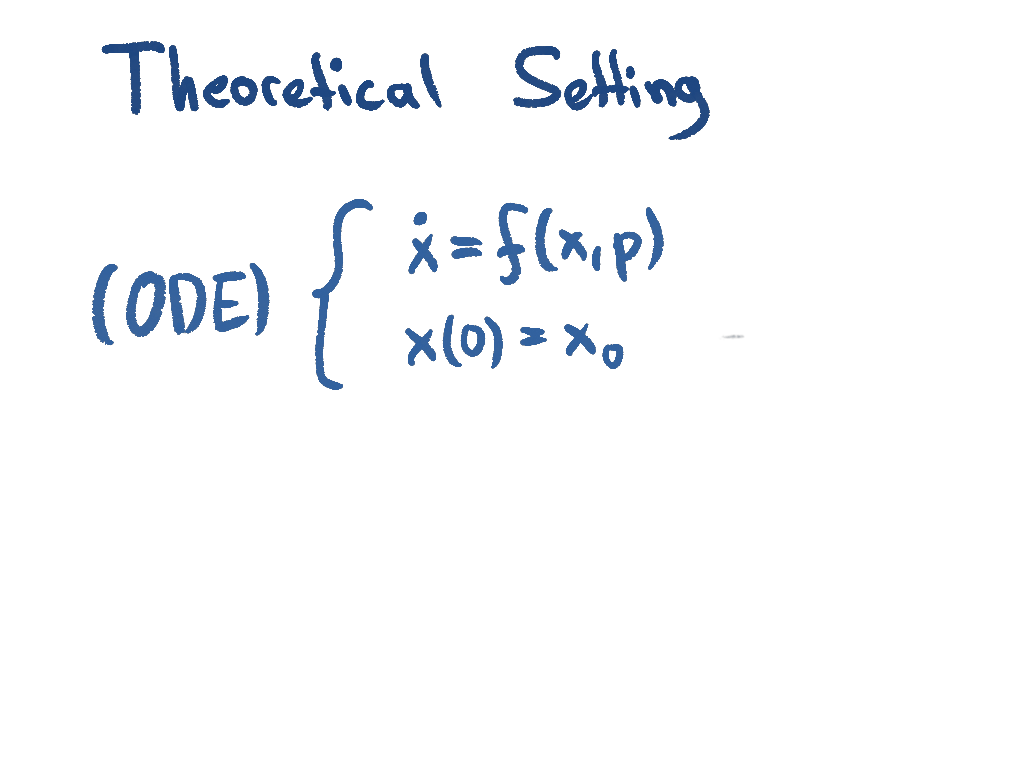 Theoretical Setting
(ODE) { ẋ = f(x, p)
x(0) = x₀